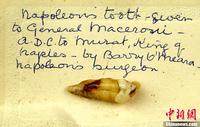 Napoleons tooth - given
to General Maceroni -
A.D.C. to Murat, King of
Naples - by Barry O'Meara -
Napoleon's Surgeon.
中新网